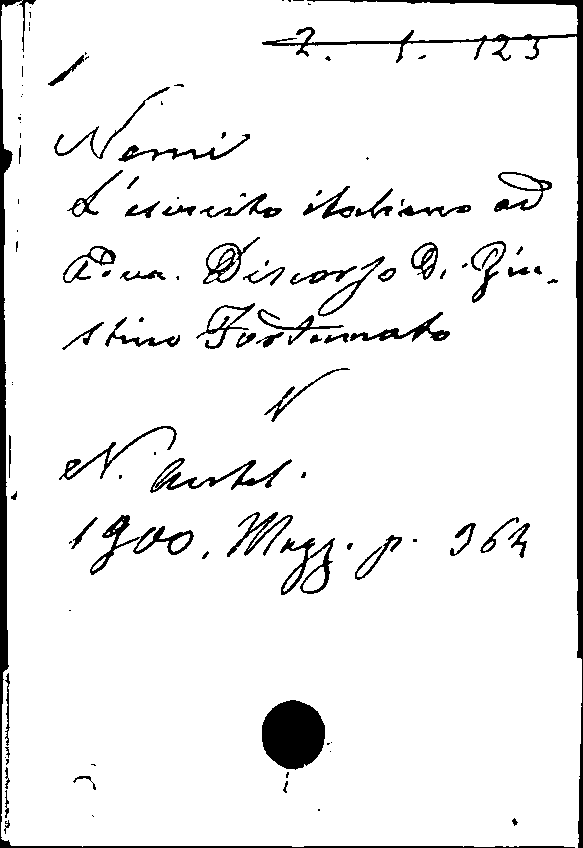 2. 1. 123
Nemi
L'esercito italiano ad
Adua. Discorso di Giu-
stino Fortunato
N
N. Antol.
1900, Magg. p. 364